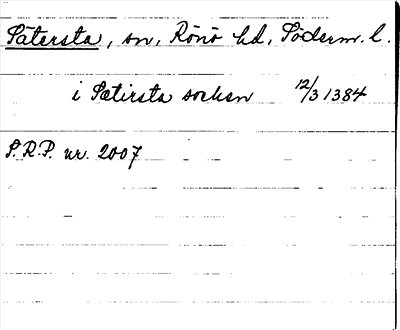 Sätersta, sn, Rönö hd, Söderm. l.
i Sætirsta sochen 12/3 1384
S.R.P. nr. 2007